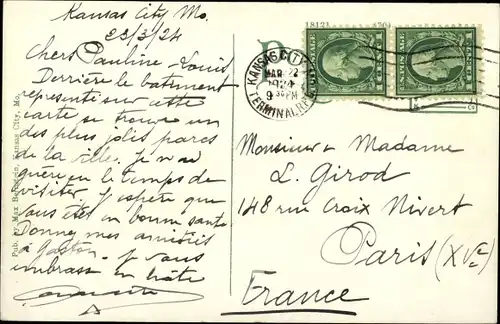 Kansas City Mo.
22/3/24
Chers Pauline - Louis
Derrière le batiment
représenté sur cette
carte se trouve un
des plus jolis parcs
de la ville. Je n'ai
guère eu le temps de
visiter. J'espère que
vous êtes en bonne santé
Donnez mes amitiés
à Gaston. Je vous
embrasse en hâte
Pub. by Max Bernstein, Kansas City, Mo.
18121
KANSAS CITY
MAR 22
1924
9 30 PM
TERMINAL R.P.O.
U.S. POSTAGE
U.S. POSTAGE
Monsieur & Madame
L. Girod
148 rue Croix Nivert
Paris (XVe)
France